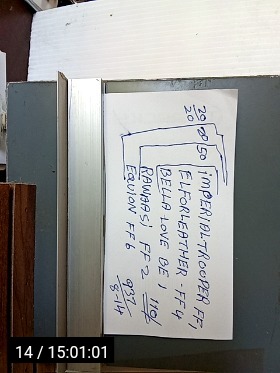 20/20
80
50
IMPERIAL TROOPER FF,
ELFORLEATHER - FF4
BELLA LOVE BE 1
RAWAASI FF2 1101
EQUION FF6 937
8-14
14 / 15:01:01